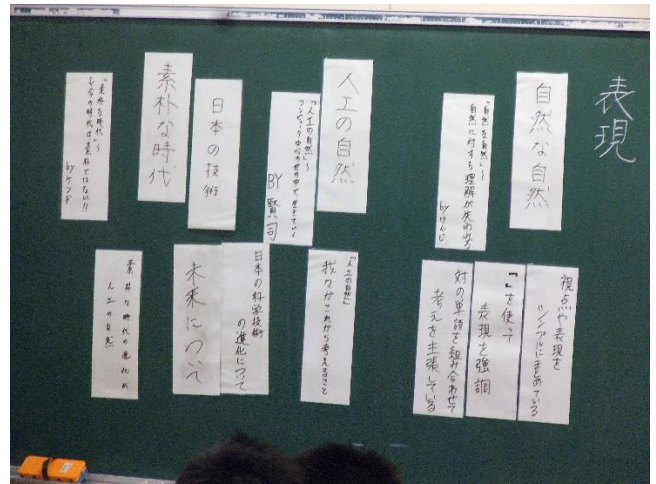 表現
自然な自然
「自然な自然」〜
自然に対する理解が失われる
byけんじ
人工の自然
「人工の自然」〜
コンピュータ中心の世の中で生きていく
BY 賢司
日本の技術
素朴な時代
「素朴な時代」〜
時代は素朴ではない!!
by ケンジ
視点や表現を
シンプルにまとめている
「」を使って
表現を強調
対の単語を組み合わせて
考えを主張している
「人工の自然」
我々がこれから考えること
日本の科学技術
の進化について
未来について
素朴な時代の進化が
人工の自然